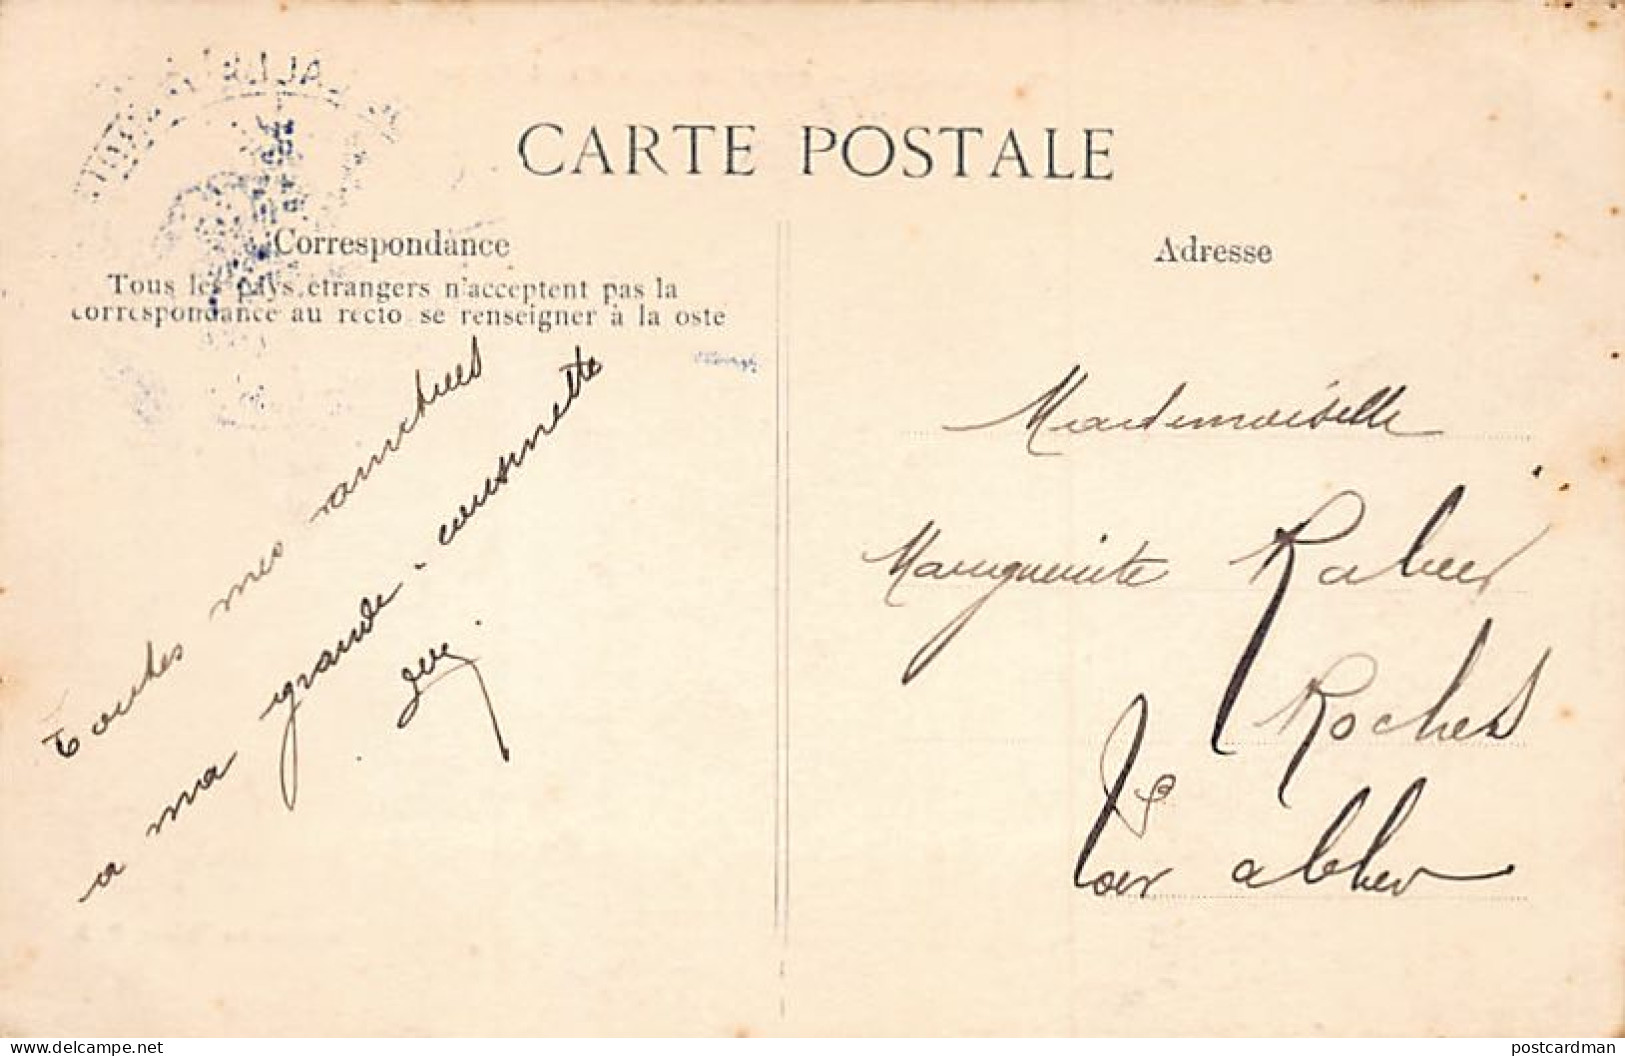 CARTE POSTALE
Correspondance
Adresse
Tous les pays etrangers n'acceptent pas la
correspondance au recto se renseigner à la oste
Toutes mes amitiés
a ma grande cousinette
Mademoiselle
Marguerite
Roches
Loir
www.delcampe.net
postcardman